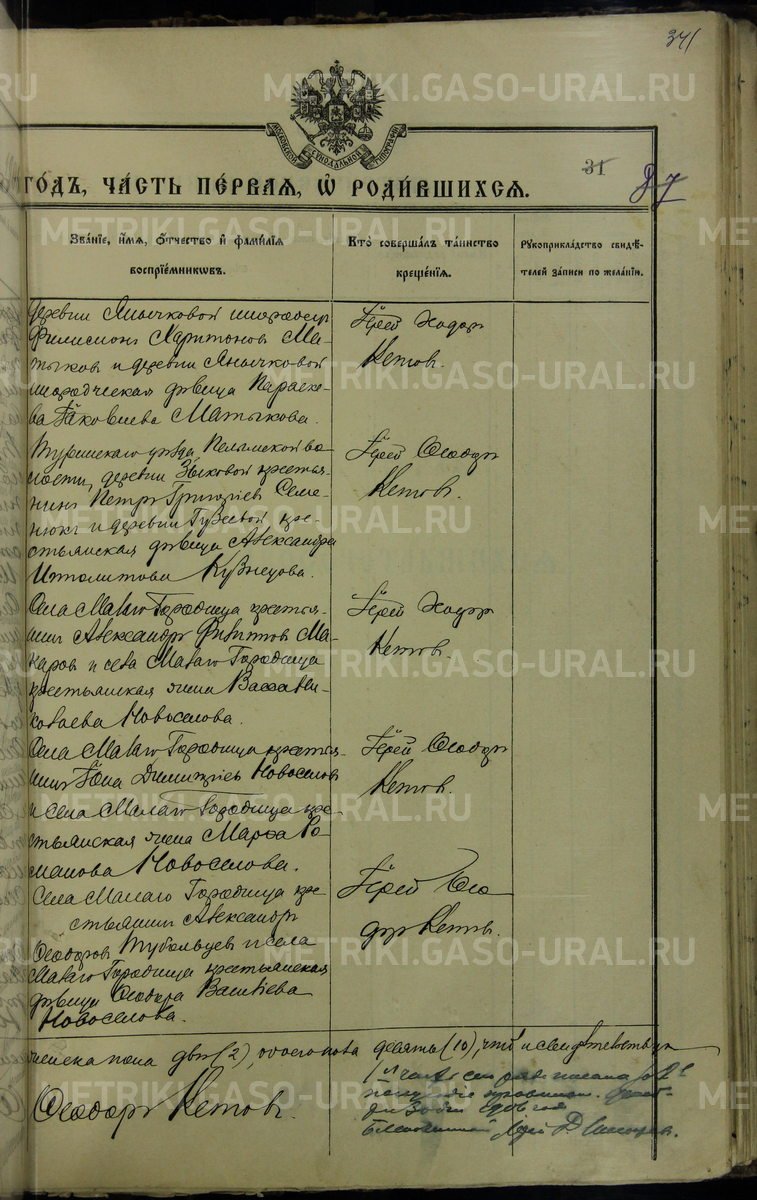 341
МОСКОВСКОЙ СѴНОДАЛЬНОЙ ТИПОГРАФІИ
ГОДЪ, ЧАСТЬ ПЕ́РВАЯ, Ѡ РОДИ́ВШИХСЯ.
31
Зва́нїе, и́мя, о́тчество и҆ фами́лїя воспрїе́мниковъ.
Кто̀ соверша́лъ та́инство креще́нїя.
Рукоприкла́дство свидѣ́телей за́писи по жела́нїи.
деревни Янычковой инородецъ
Филисионъ Харитоновъ Ма-
тыковъ и деревни Янычковой
инородческая дѣвица Параске-
ва Іаковлева Матыкова.
Іерей Ѳеодоръ
Кетовъ.
Туринскаго уѣзда, Пелымской во-
лости, деревни Зыковой крестья-
нинъ Петръ Григоріевъ Семе-
нюкъ и деревни Гузеевой, кре-
стьянская дѣвица Александра
Ипполитова Кузнецова.
Іерей Ѳеодоръ
Кетовъ.
Села Малаго Городища крестья-
нинъ Александръ Филиповъ Ма-
каровъ и села Малаго Городища
крестьянская жена Васса Ни-
колаева Новоселова.
Іерей Ѳеодоръ
Кетовъ.
Села Малаго Городища крестья-
нинъ Іона Димитріевъ Новоселовъ
и села Малаго Городища кре-
стьянская жена Марѳа Ро-
манова Новоселова.
Іерей Ѳеодоръ
Кетовъ.
Села Малаго Городища кре-
стьянинъ Александръ
Ѳеодоровъ Тубольцевъ и села
Малаго Городища крестьянская
дѣвица Ѳеодора Васильева
Новоселова.
Іерей Ѳео
доръ Кетовъ.
женска пола два (2), обоего пола десять (10), что и свидѣтельствую
Ѳеодоръ Кетовъ.
1906 года
Благочинный Іерей
METRIKI.GASO-URAL.RU